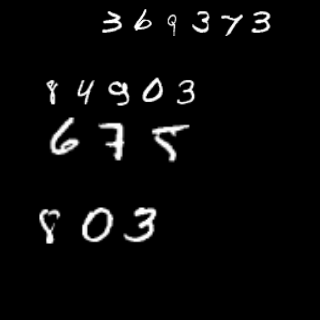 369373
84903
675
803